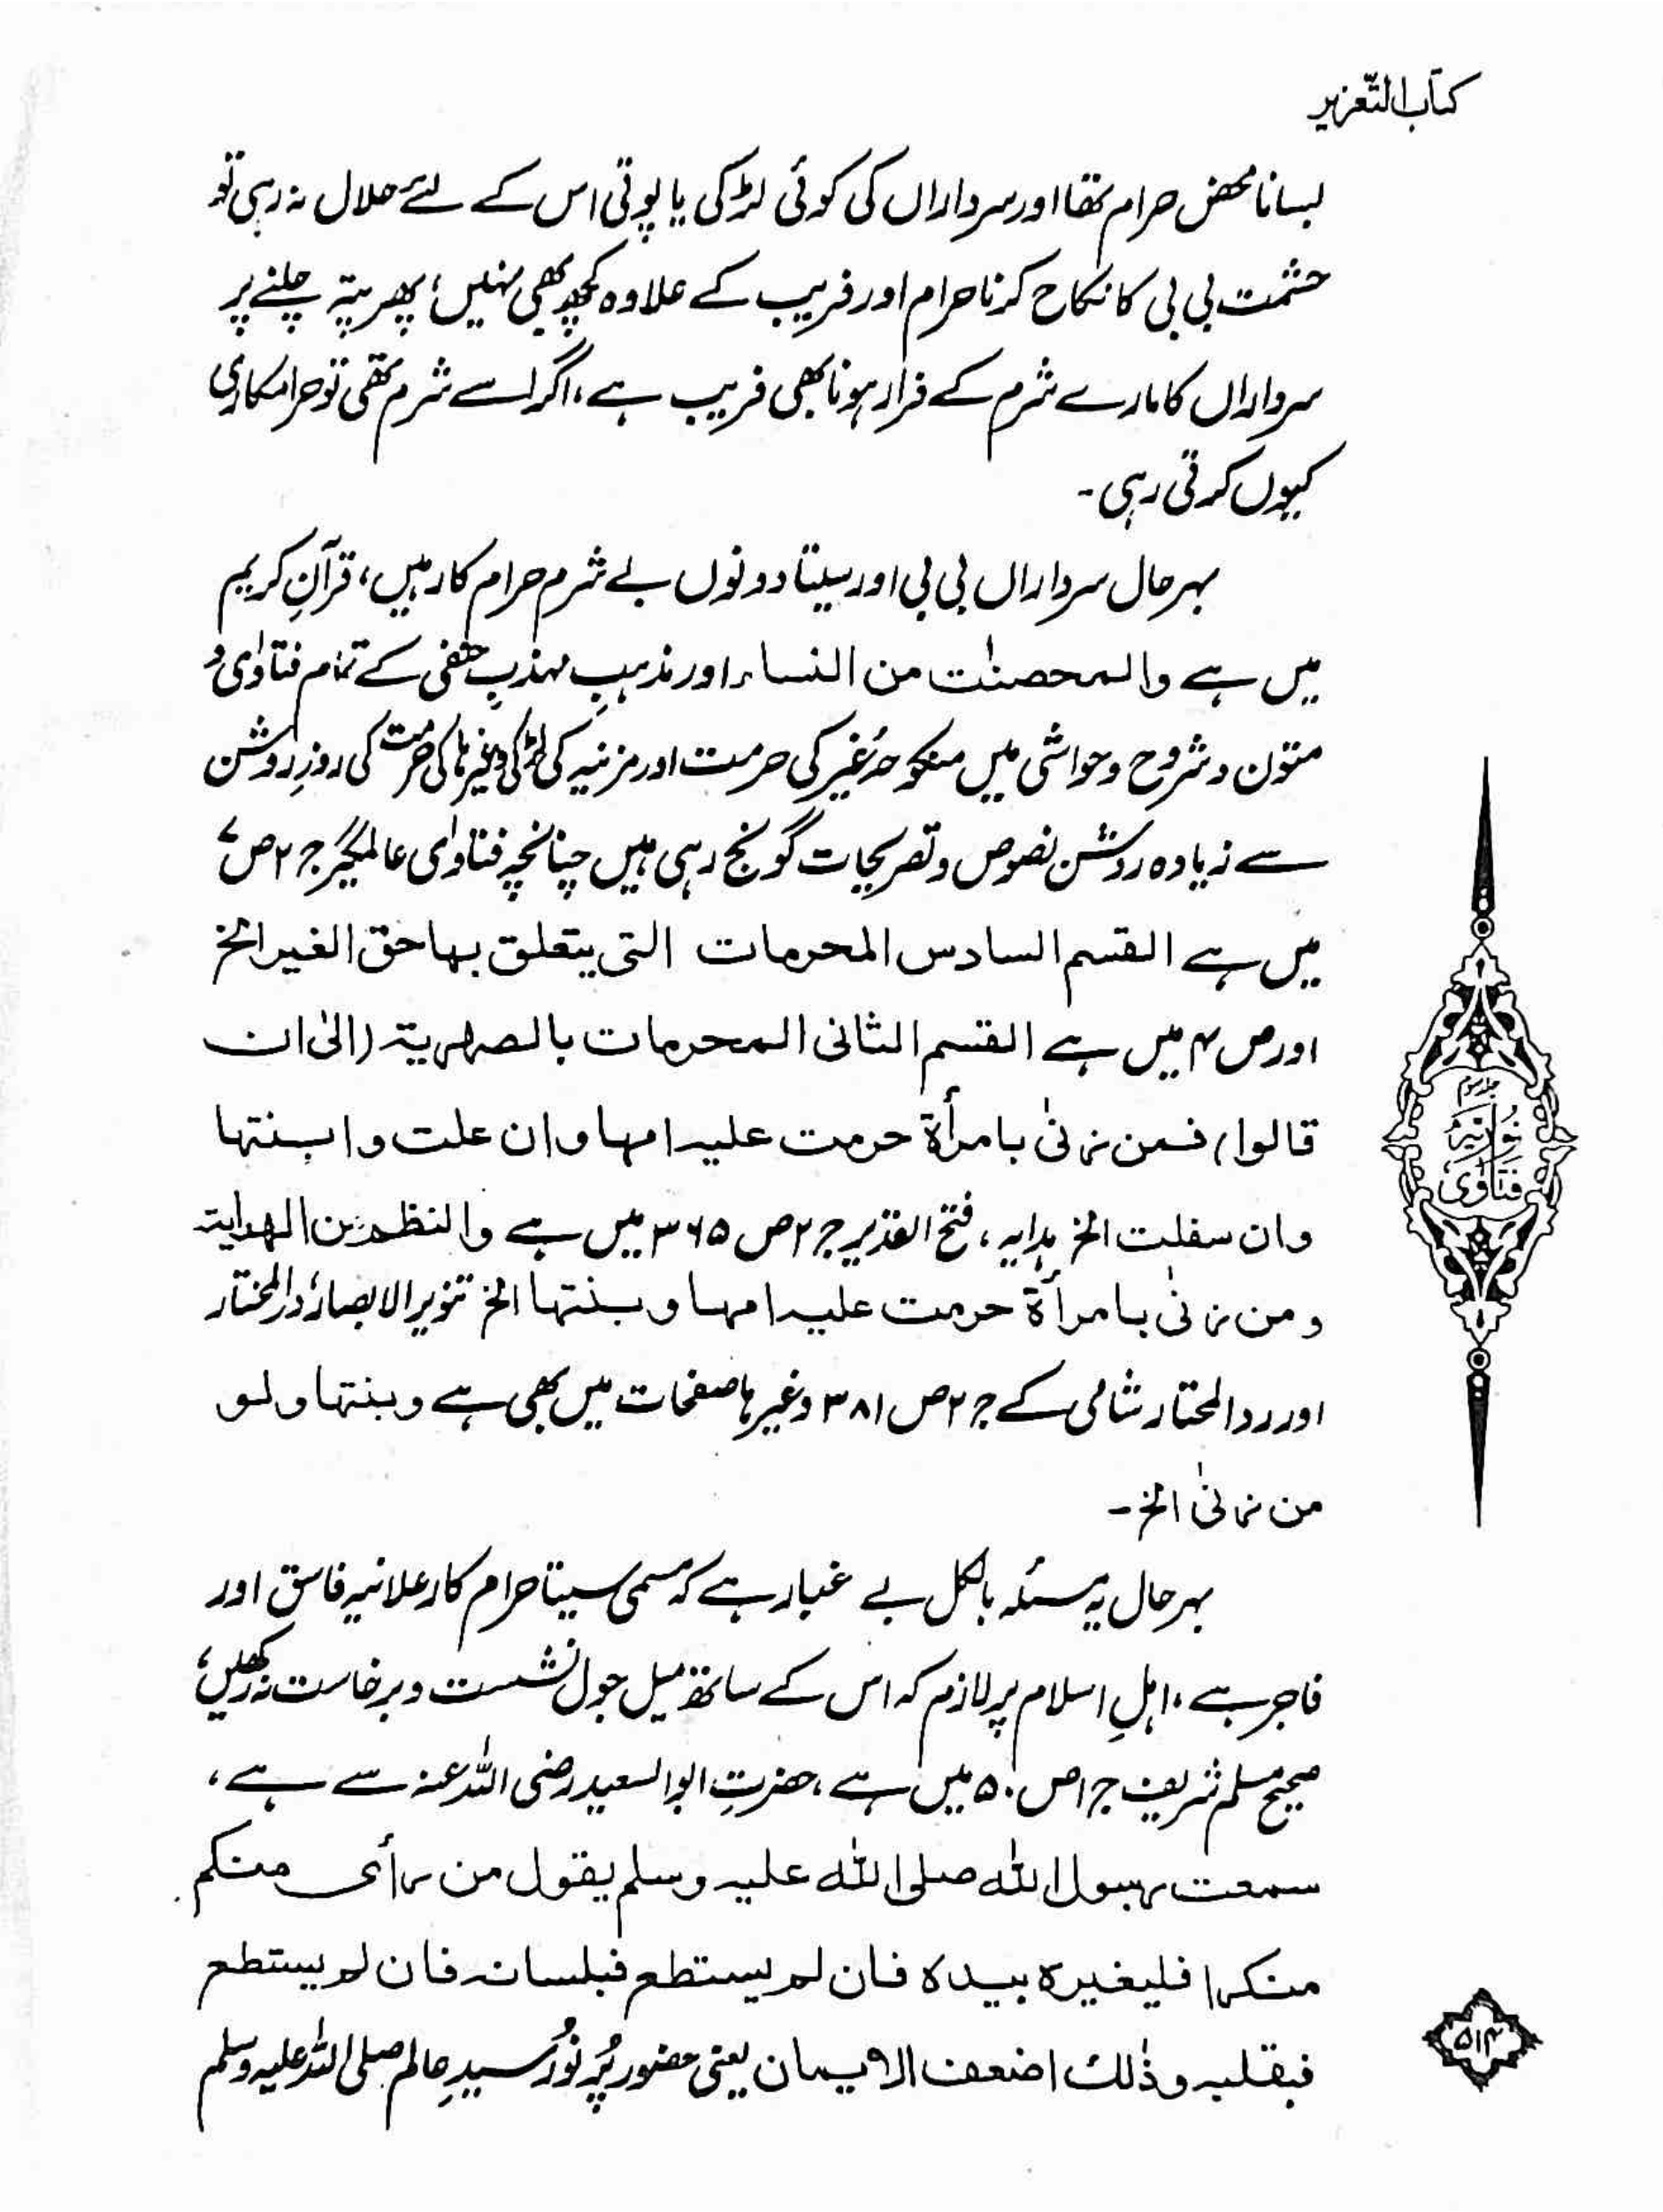 کتاب التعزیر
بسانا محض حرام تھا اور سرداراں کی کوئی لڑکی یا پوتی اس کے لئے حلال نہ رہی تو
حشمت بی بی کا نکاح کرنا حرام اور فریب کے علاوہ کچھ بھی نہیں، پھر پتہ چلنے پر
سرداراں کا مارے شرم کے فرار ہونا بھی فریب ہے، اگر اسے شرم تھی تو حرامکاری
کیوں کرتی رہی۔
بہرحال سرداراں بی بی اور سیتا دونوں بے شرم حرام کار ہیں، قرآنِ کریم
میں ہے والمحصنٰت من النساء اور مذہبِ مہذبِ حنفی کے تمام فتاوٰی و
متون و شروح و حواشی میں منکوحۂ غیر کی حرمت اور مزنیہ کی لڑکی وغیرہا کی حرمت کی روزِ روشن
سے زیادہ روشن نصوص و تصریحات گونج رہی ہیں چنانچہ فتاوٰی عالمگیر ج ۲ ص ۷
میں ہے القسم السادس المحرمات التی یتعلق بہا حق الغیر الخ
اور ص ۴ میں ہے القسم الثانی المحرمات بالصہریۃ (الیٰ ان
قالوا) فمن زنیٰ بامرأۃ حرمت علیہ امہا وان علت وابنتہا
وان سفلت الخ ہدایہ، فتح القدیر ج ۲ ص ۳۶۵ میں ہے والنظم من الہدایۃ
ومن زنیٰ بامرأۃ حرمت علیہ امہا وبنتہا الخ تنویر الابصار، درالمختار
اور ردالمحتار شامی کے ج ۲ ص ۳۸۱ وغیرہا صفحات میں بھی ہے وبنتہا ولو
من زنیٰ الخ۔
بہرحال یہ مسئلہ بالکل بے غبار ہے کہ مسمی سیتا حرام کار علانیہ فاسق اور
فاجر ہے، اہلِ اسلام پر لازم کہ اس کے ساتھ میل جول نشست و برخاست نہ رکھیں،
صحیح مسلم شریف ج ۱ ص ۵۰ میں ہے، حضرتِ ابوالسعید رضی اللہ عنہ سے ہے،
سمعت رسول اللہ صلی اللہ علیہ وسلم یقول من رأی منکم
منکرا فلیغیرہ بیدہ فان لم یستطع فبلسانہ فان لم یستطع
فبقلبہ وذٰلک اضعف الایمان یعنی حضور پُر نُور سیدِ عالم صلی اللہ علیہ وسلم
جلد سوم
نُورِیَّہ
فتاوٰی
۵۱۴